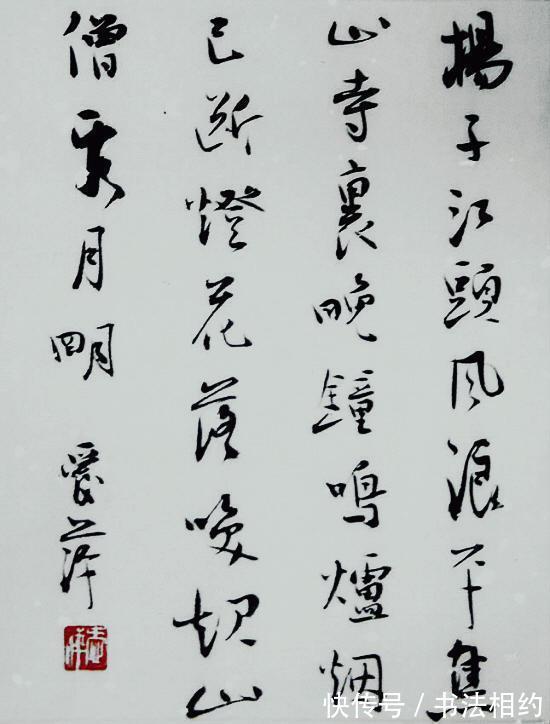 揚子江頭風浪平焦
山寺裏晚鐘鳴爐烟
已斷燈花落喚起山
僧看月明
愛萍
快传号/书法相约